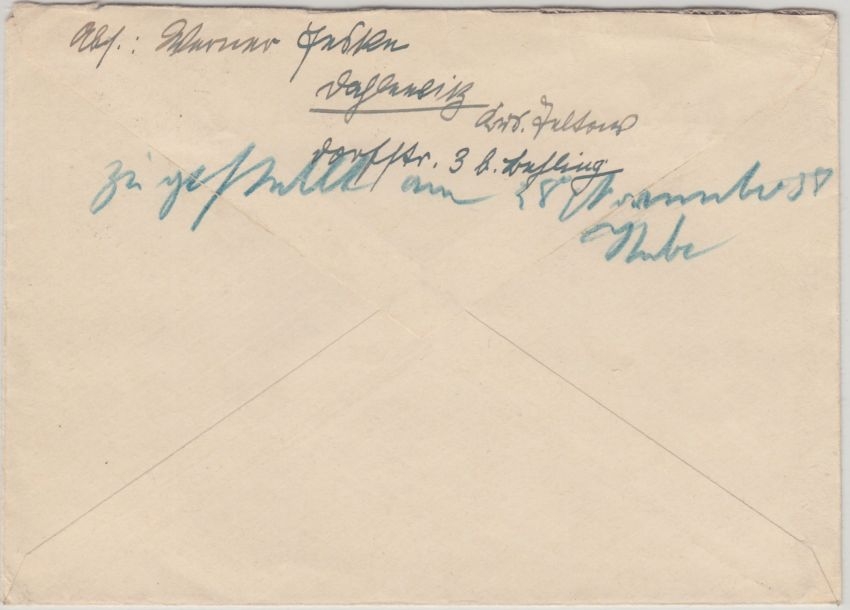 Abs.: Werner Jeske
Dahlewitz
Krs. Teltow
Dorfstr. 3 b. Behling
zugestellt am 28 November 38